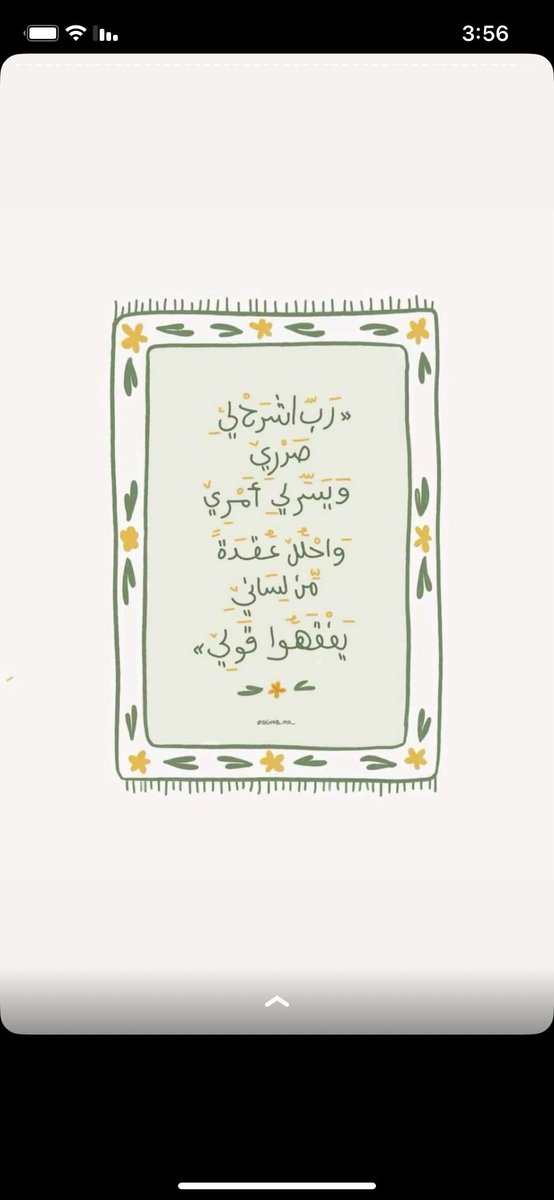 3:56
«رَبِّ اشْرَحْ لِيْ
صَدْرِيْ
وَيَسِّرْ لِيْ أَمْرِيْ
وَاحْلُلْ عُقْدَةً
مِّنْ لِسَانِيْ
يَفْقَهُوا قَوْلِيْ»